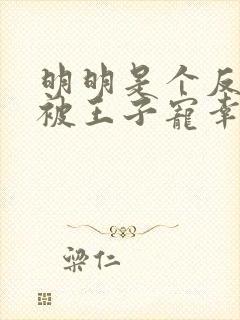 明明是个反
被王子宠幸
梁仁